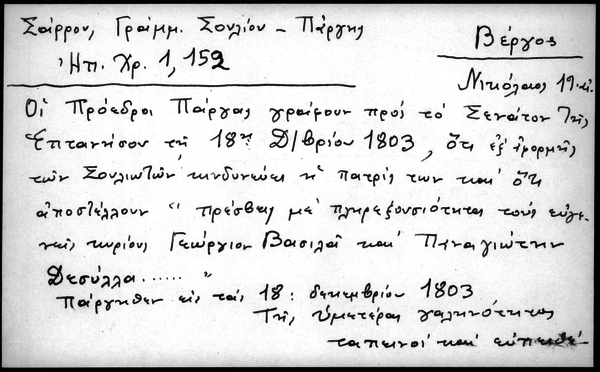 Σάρρου, Γράμμ. Σουλίου - Πάργης
Βέργος
Ἠπ. Χρ. 1, 152
Νικόλαος
Οἱ Πρόεδροι Πάργας γράφουν πρός τό Σενάτον τῆς
Ἑπτανήσου τῇ 18ῃ Δ/βρίου 1803, ὅτι ἐξ ἀφορμῆς
τῶν Σουλιωτῶν κινδυνεύει ἡ πατρίς των καί ὅτι
ἀποστέλλουν "πρέσβεις μέ πληρεξουσιότητα τούς εὐγε-
νεῖς κυρίους Γεώργιον Βασιλᾶ καί Παναγιώτην
Δεσύλλα...... "
Πάργηθεν εἰς τάς 18: δεκεμβρίου 1803
Τῆς ὑμετέρας γαληνότητος
ταπεινοί καί εὐπειθεῖ